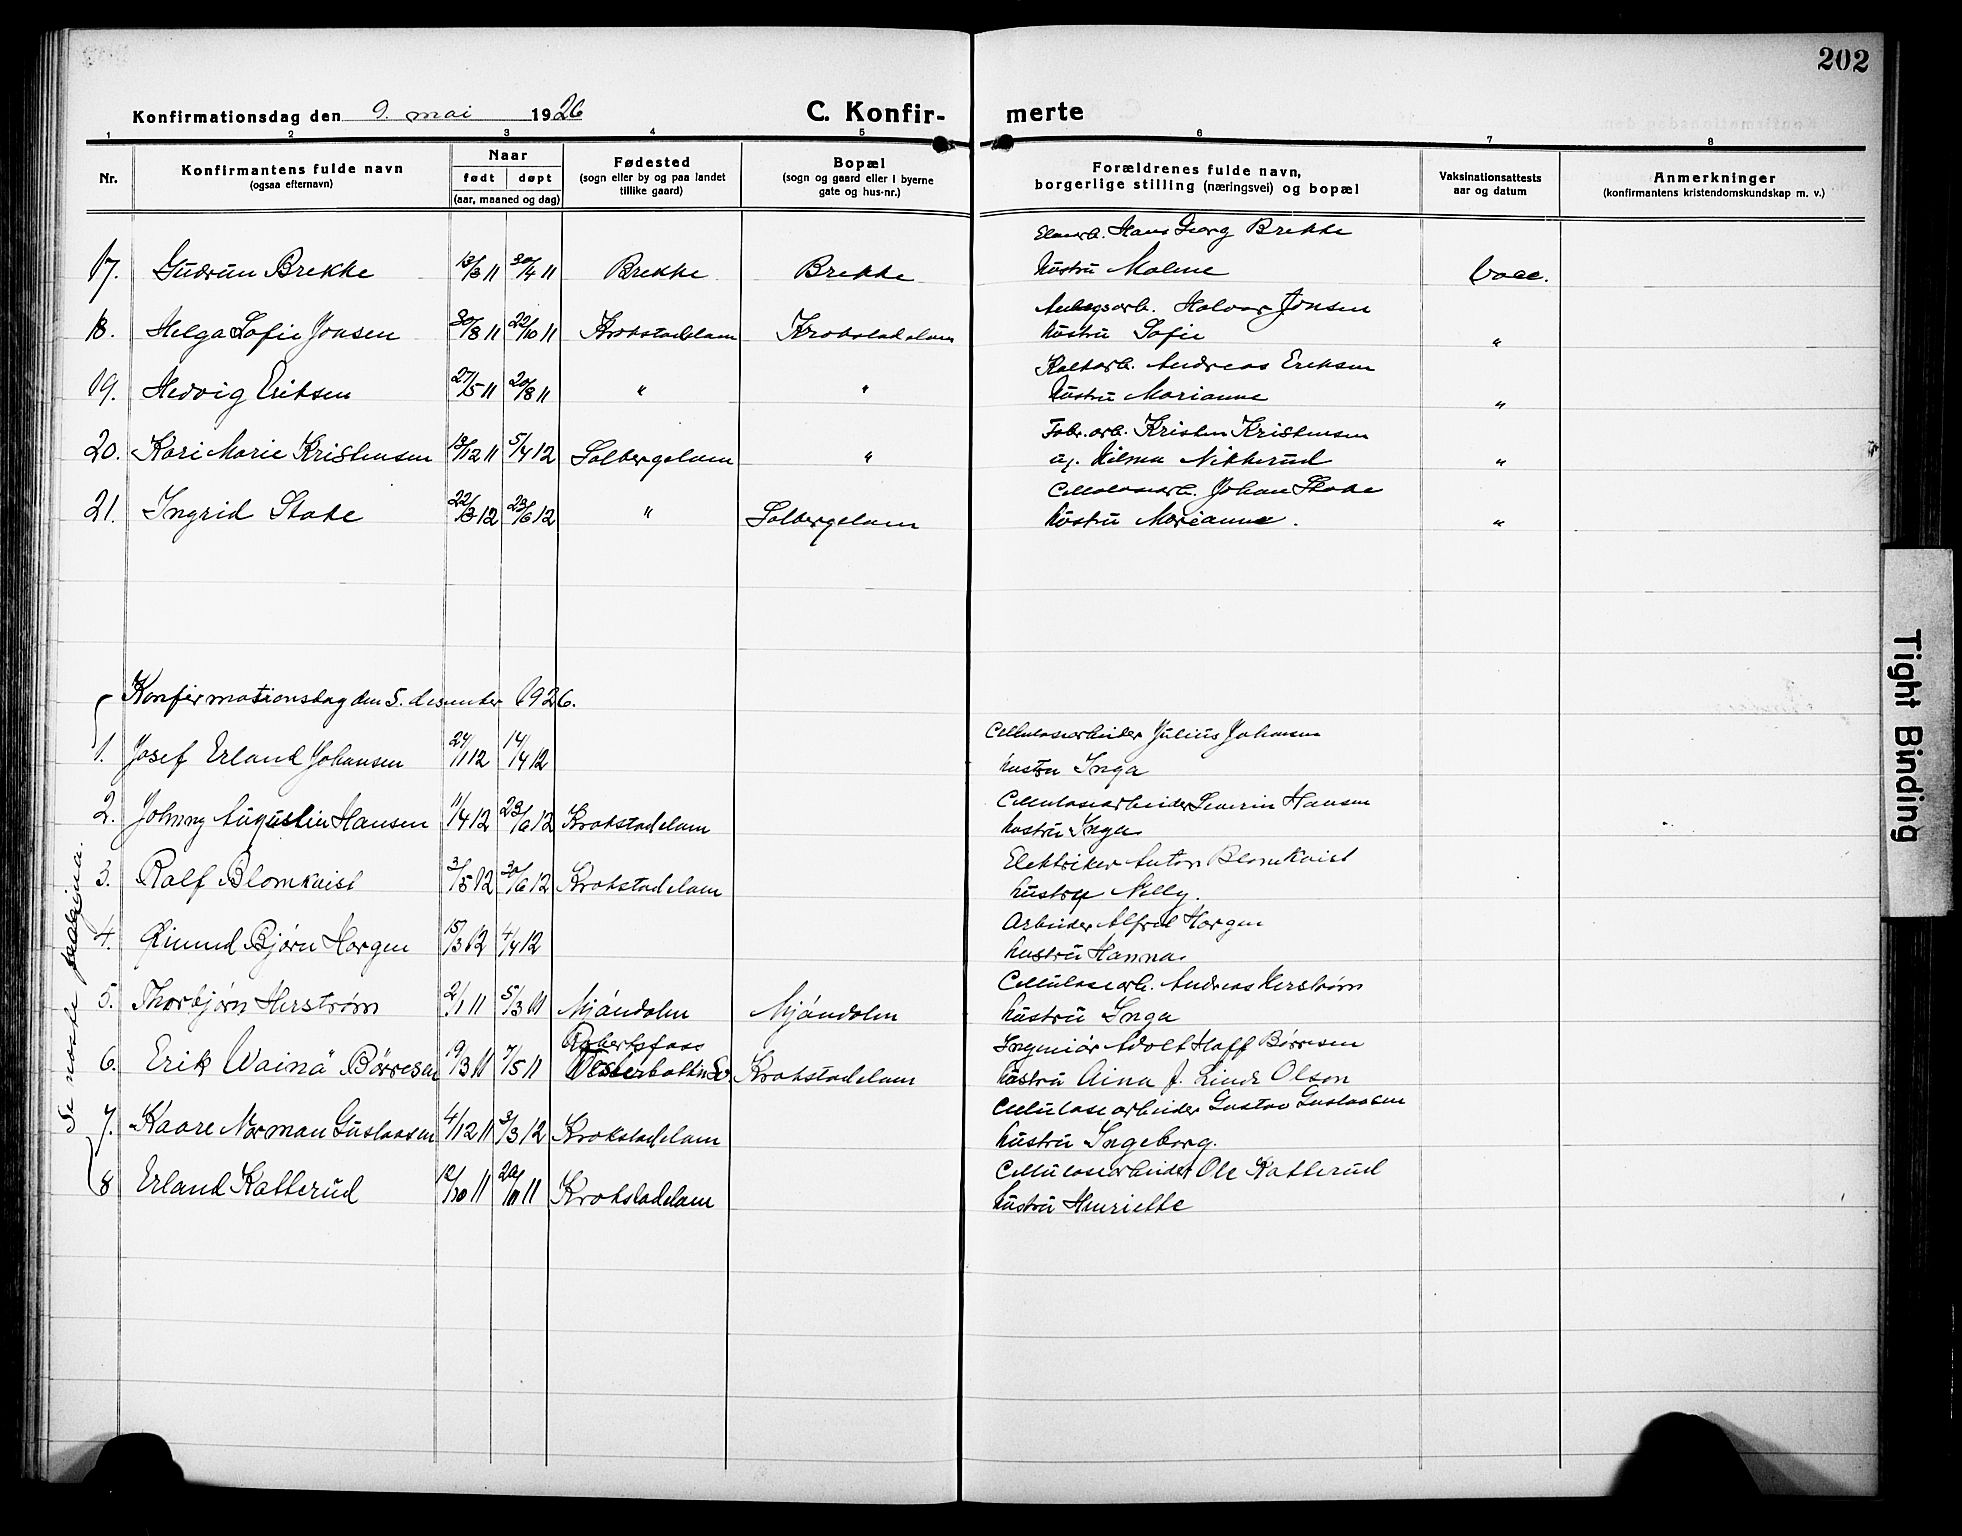 202
Konfirmationsdag den 9. mai 1926 C. Konfir- merte
1 2 3 4 5 6 7 8
Nr. Konfirmantens fulde navn (ogsaa efternavn) Naar født døpt (aar, maaned og dag) Fødested (sogn eller by og paa landet tillike gaard) Bopæl (sogn og gaard eller i byerne gate og hus-nr.) Forældrenes fulde navn, borgerlige stilling (næringsvei) og bopæl Vaksinationsattests aar og datum Anmerkninger (konfirmantens kristendomskundskap m. v.)
Hans Georg Brekke
17. Gudrun Brekke 13/3 11 30/4 11 Brekke Brekke hustru Malene Vacc.
Halvor Jonsen
18. Helga Sofie Jonsen 30/8 11 22/10 11 Krokstadelven Krokstadelven hustru Sofie "
Andreas Eriksen
19. Hedvig Eriksen 27/5 11 20/8 11 " " hustru Marianne "
Fabr.arb. Kristen Kristensen
20. Kari Marie Kristensen 13/12 11 5/4 12 Solbergelven " og Hilma Nikkerud "
Cellulosearb. Johan Stake
21. Ingrid Stake 22/3 12 23/6 12 " Solbergelven hustru Marianne. "
Konfirmationsdag den 5. desember 1926.
Cellulosearbeider Julius Johansen
1. Josef Erland Johansen 24/1 12 14/4 12 hustru Inga
Cellulosearbeider Severin Hansen
2. Johnny Augustin Hansen 11/4 12 23/6 12 Krokstadelven hustru Inga
Elektriker Anton Blomkvist
3. Ralf Blomkvist 3/5 12 30/6 12 Krokstadelven hustru Nelly.
Arbeider Alfred Horgen
4. Eivind Bjørn Horgen 15/3 12 4/4 12 hustru Hanna.
Cellulosearb. Andreas Herstrøm
5. Thorbjørn Herstrøm 2/1 11 5/3 11 Mjøndalen Mjøndalen hustru Inga
Robertsfoss Ingeniør Adolf Hoff Børresen
6. Erik Wainø Børresen 19/3 11 7/5 11 Vesterbotten Sv. Krokstadelven hustru Aina f. Linde Olson
Cellulosearbeider Gustav Gustavsen
7. Kaare Norman Gustavsen 4/12 11 3/3 12 Krokstadelven hustru Ingeborg.
Cellulosearbeider Ole Katterud
8 Erland Katterud 12/10 11 Krokstadelven hustru Henriette
Se neste pagina.
Tight Binding